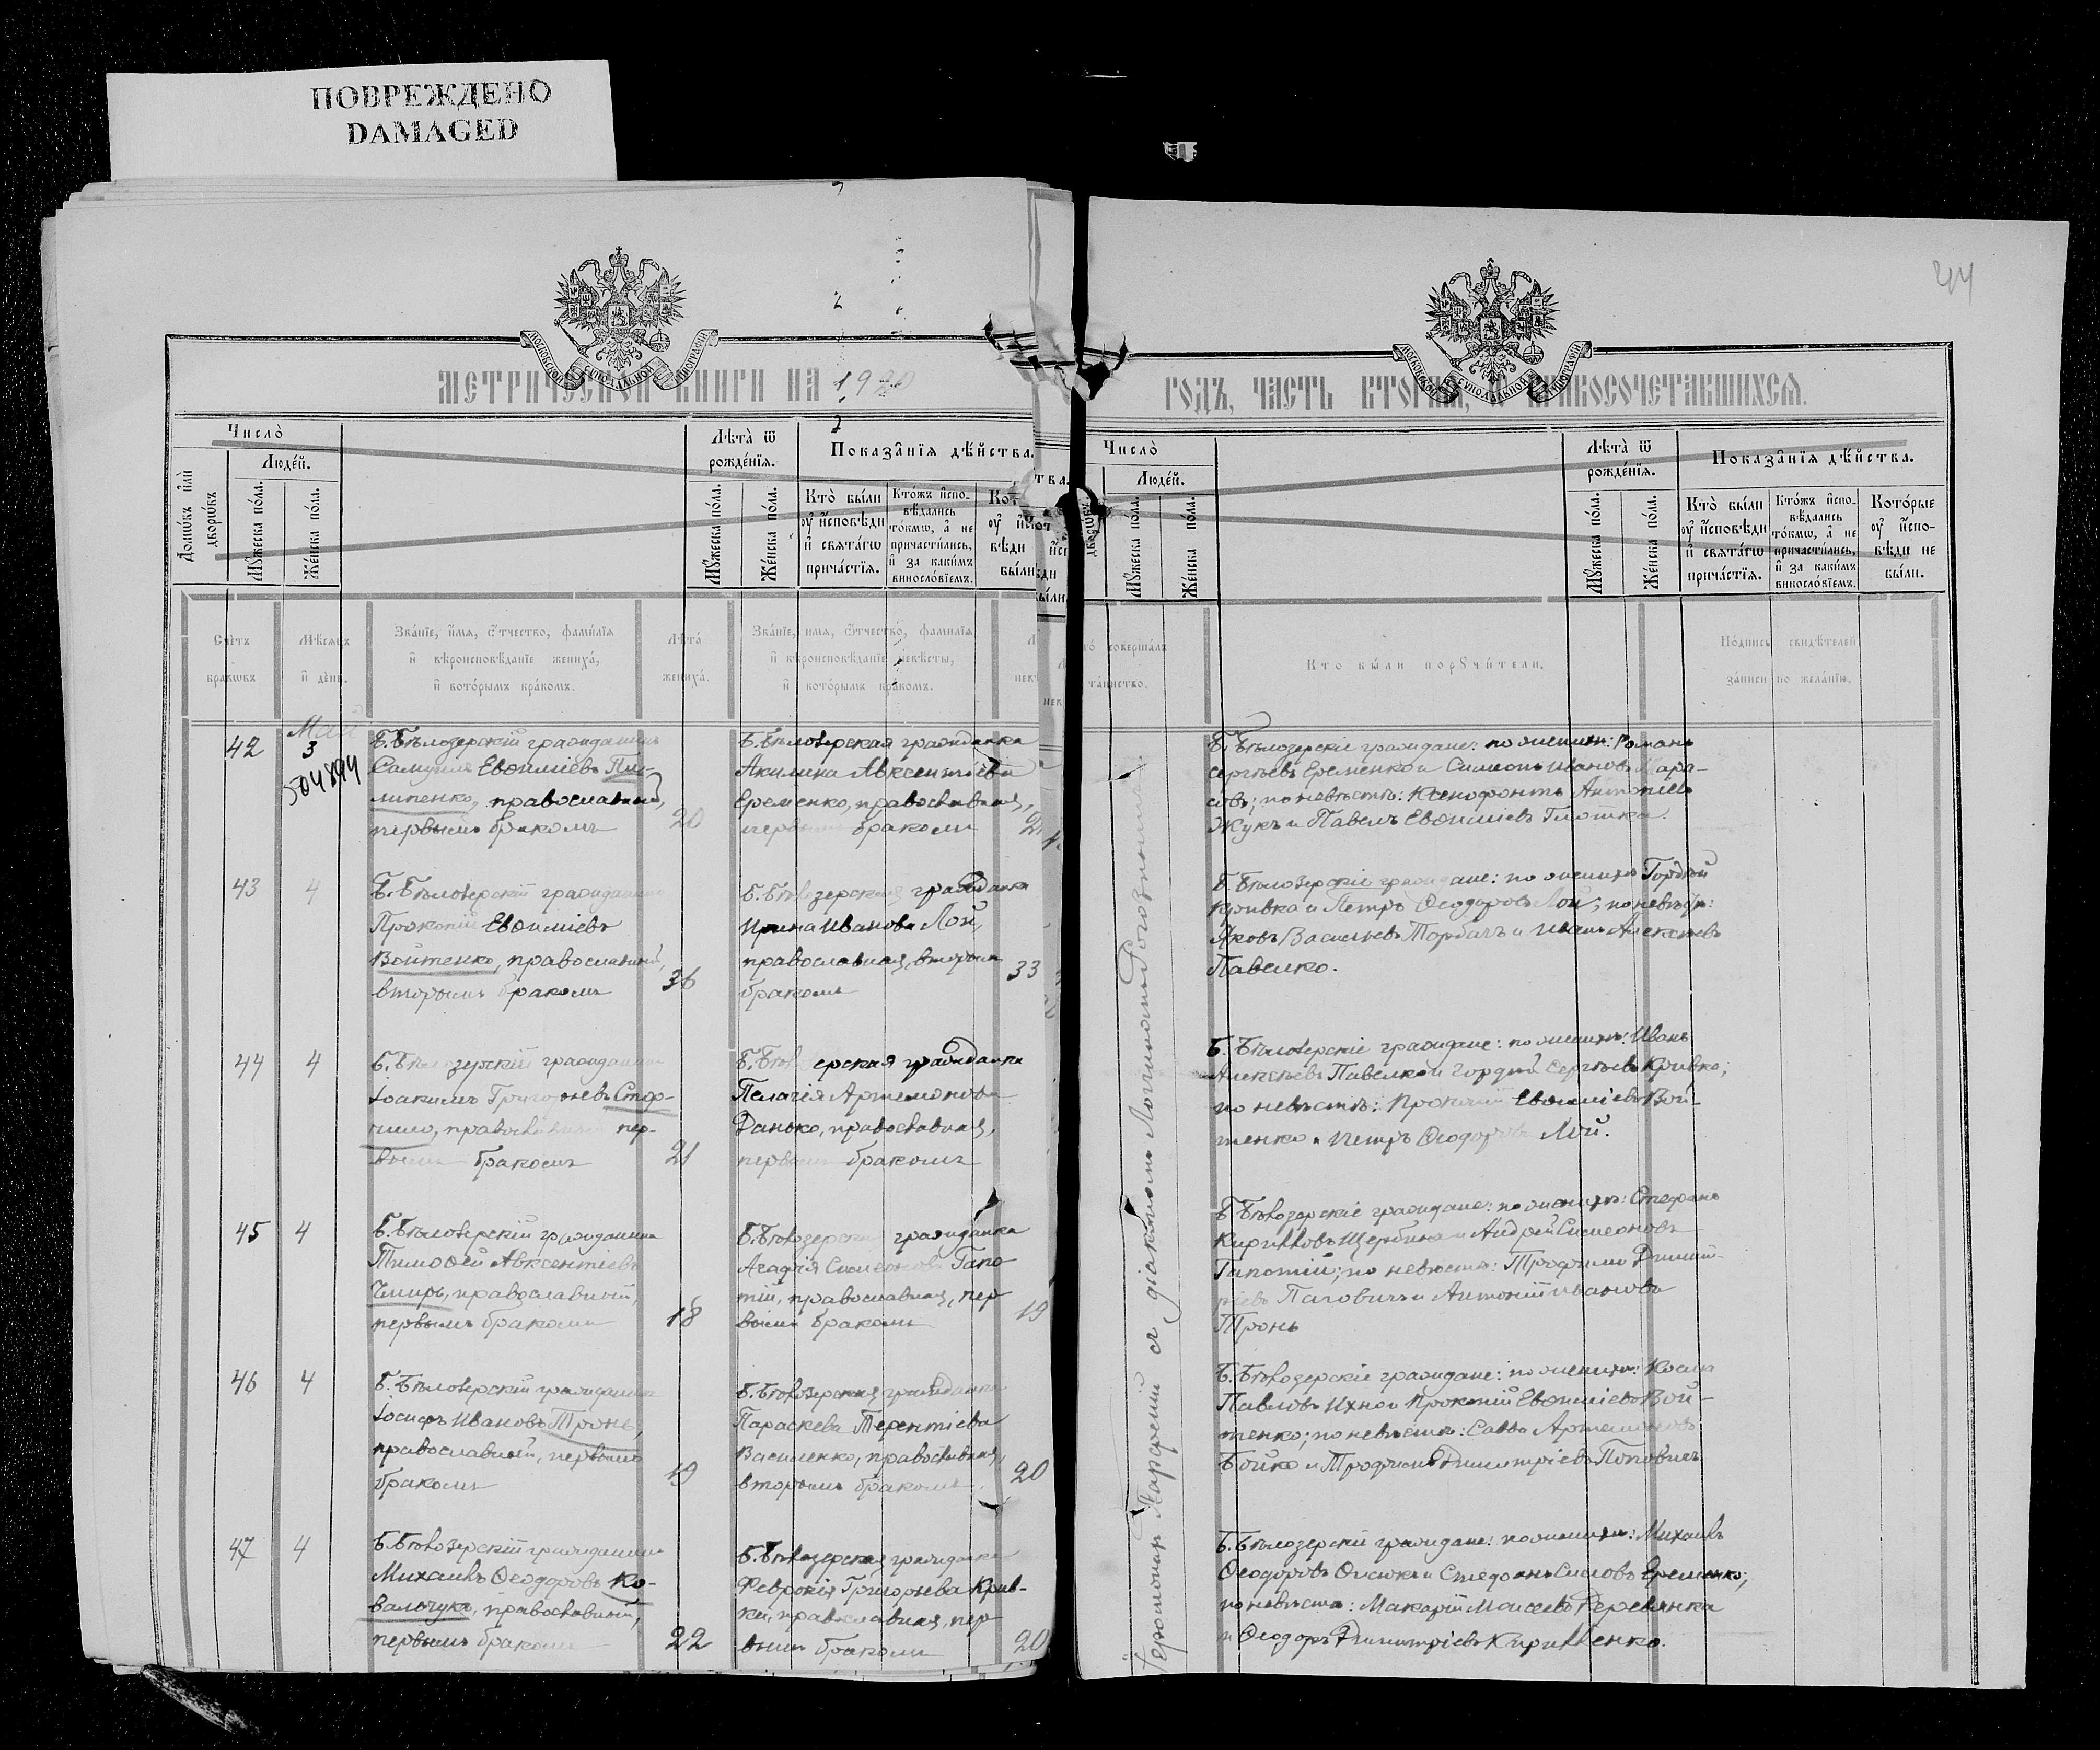 ПОВРЕЖДЕНО
DAMAGED
44
МОСКОВСКОЙ СѴНОДАЛЬНОЙ ТИПОГРАФІИ
МОСКОВСКОЙ СѴНОДАЛЬНОЙ ТИПОГРАФІИ
КНИГИ НА 1920
ГОДЪ, ЧАСТЬ ВТОРАЯ,
Число̀
Людей.
Домѡвъ и҆лѝ дворѡвъ
Мꙋжеска по́ла.
Же́нска по́ла.
Лѣта̀ ѿ рожде́нїѧ.
Мꙋжеска по́ла.
Же́нска по́ла.
Показа̂нїѧ дѣ́йства.
Кто̀ бы́ли оу҆ и҆сповѣди и҆ свѧта́гѡ прича́стїѧ.
Кто́жъ и҆сповѣдались то́кмѡ, а҆ не причасти́лись, и҆ за каки́мъ винослѡ́вїемъ.
Число̀
Людей.
Мꙋжеска по́ла.
Же́нска по́ла.
Лѣта̀ ѿ рожде́нїѧ.
Мꙋжеска по́ла.
Же́нска по́ла.
Показа̂нїѧ дѣ́йства.
Кто̀ бы́ли оу҆ и҆сповѣди и҆ свѧта́гѡ прича́стїѧ.
Кто́жъ и҆сповѣдались то́кмѡ, а҆ не причасти́лись, и҆ за каки́мъ винослѡ́вїемъ.
Кото́рые оу҆ и҆сповѣди не бы́ли.
Счетъ браковъ
Мѣсяцъ и день.
Званіе, имя, отчество, фамилія и вѣроисповѣданіе жениха, и которымъ бракомъ.
Лѣта жениха.
Званіе, имя, отчество, фамилія и вѣроисповѣданіе невѣсты, и которымъ бракомъ.
совершалъ таинство.
Кто были поручители.
Подпись свидѣтелей записи по желанію.
Май
42
3
504894
Б. Бѣлозерскій гражданинъ
Самуилъ Евѳиміевъ Пи-
липенко, православный,
первымъ бракомъ
20
Б. Бѣлозерская гражданка
Акилина Авксентіева
Еременко, православная,
первымъ бракомъ
Б. Бѣлозерскіе граждане: по женихѣ: Романъ
Сергѣевъ Еременко и Симеонъ Ивановъ
по невѣстѣ: Ксенофонтъ Антоніевъ
Жукъ и Павелъ Евѳиміевъ Глотка.
43
4
Б. Бѣлозерскій гражданинъ
Прокопій Евѳиміевъ
Войтенко, православный,
вторымъ бракомъ
36
Б. Бѣлозерская гражданка
Ирина Иванова Лой,
православная, вторымъ
бракомъ
33
Б. Бѣлозерскіе граждане: по женихѣ Гордій
Кривка и Петръ Ѳеодоровъ Лой; по невѣстѣ:
Яковъ Васильевъ Торбачъ и Иванъ Алексѣевъ
Павелко.
44
4
Б. Бѣлозерскій гражданинъ
Іоакимъ Григорьевъ
православный пер-
вымъ бракомъ
21
Б. Бѣлозерская гражданка
Пелагія Артемонова
Данько, православная,
первымъ бракомъ
Б. Бѣлозерскіе граждане: по женихѣ: Иванъ
Алексѣевъ Павелко и Гордій Сергѣевъ Кривко;
по невѣстѣ: Прокопій Евѳиміевъ Вой-
тенко и Петръ Ѳеодоровъ Лой.
45
4
Б. Бѣлозерскій гражданинъ
Тимоѳей Авксентіевъ
Чмиръ, православный,
первымъ бракомъ
18
Б. Бѣлозерская гражданка
Агафія Симеонова Гапо-
тій, православная, пер-
вымъ бракомъ
19
Б. Бѣлозерскіе граждане: по женихѣ: Стефанъ
Кирилловъ Щербина и Андрей Симеоновъ
Гапотій; по невѣстѣ: Трофимъ Димит-
ріевъ Паповичъ и Антоній Ивановъ
Тронь
46
4
Б. Бѣлозерскій гражданинъ
Іосифъ Ивановъ Тронь,
православный, первымъ
бракомъ
19
Б. Бѣлозерская гражданка
Параскева Терентіева
Василенко, православная,
вторымъ бракомъ.
20
Б. Бѣлозерскіе граждане: по женихѣ: Косма
Павловъ Ихно и Прокопій Евѳиміевъ Вой-
тенко; по невѣстѣ: Савва Артемоновъ
Бойко и Трофимъ Димитріевъ Поповичъ
47
4
Б. Бѣлозерскій гражданинъ
Михаилъ Ѳеодоровъ Ко-
вальчукъ, православный,
первымъ бракомъ
22
Б. Бѣлозерская гражданка
Февронія Григорьева Крив-
ка, православная, пер-
вымъ бракомъ
20
Б. Бѣлозерскіе граждане: по женихѣ: Михаилъ
Ѳеодоровъ и Стефанъ Еременко;
по невѣстѣ: Макарій Моисеевъ Деревянка
и Ѳеодоръ Димитріевъ Кириленко.
Іеромонахъ Парфеній съ діакономъ